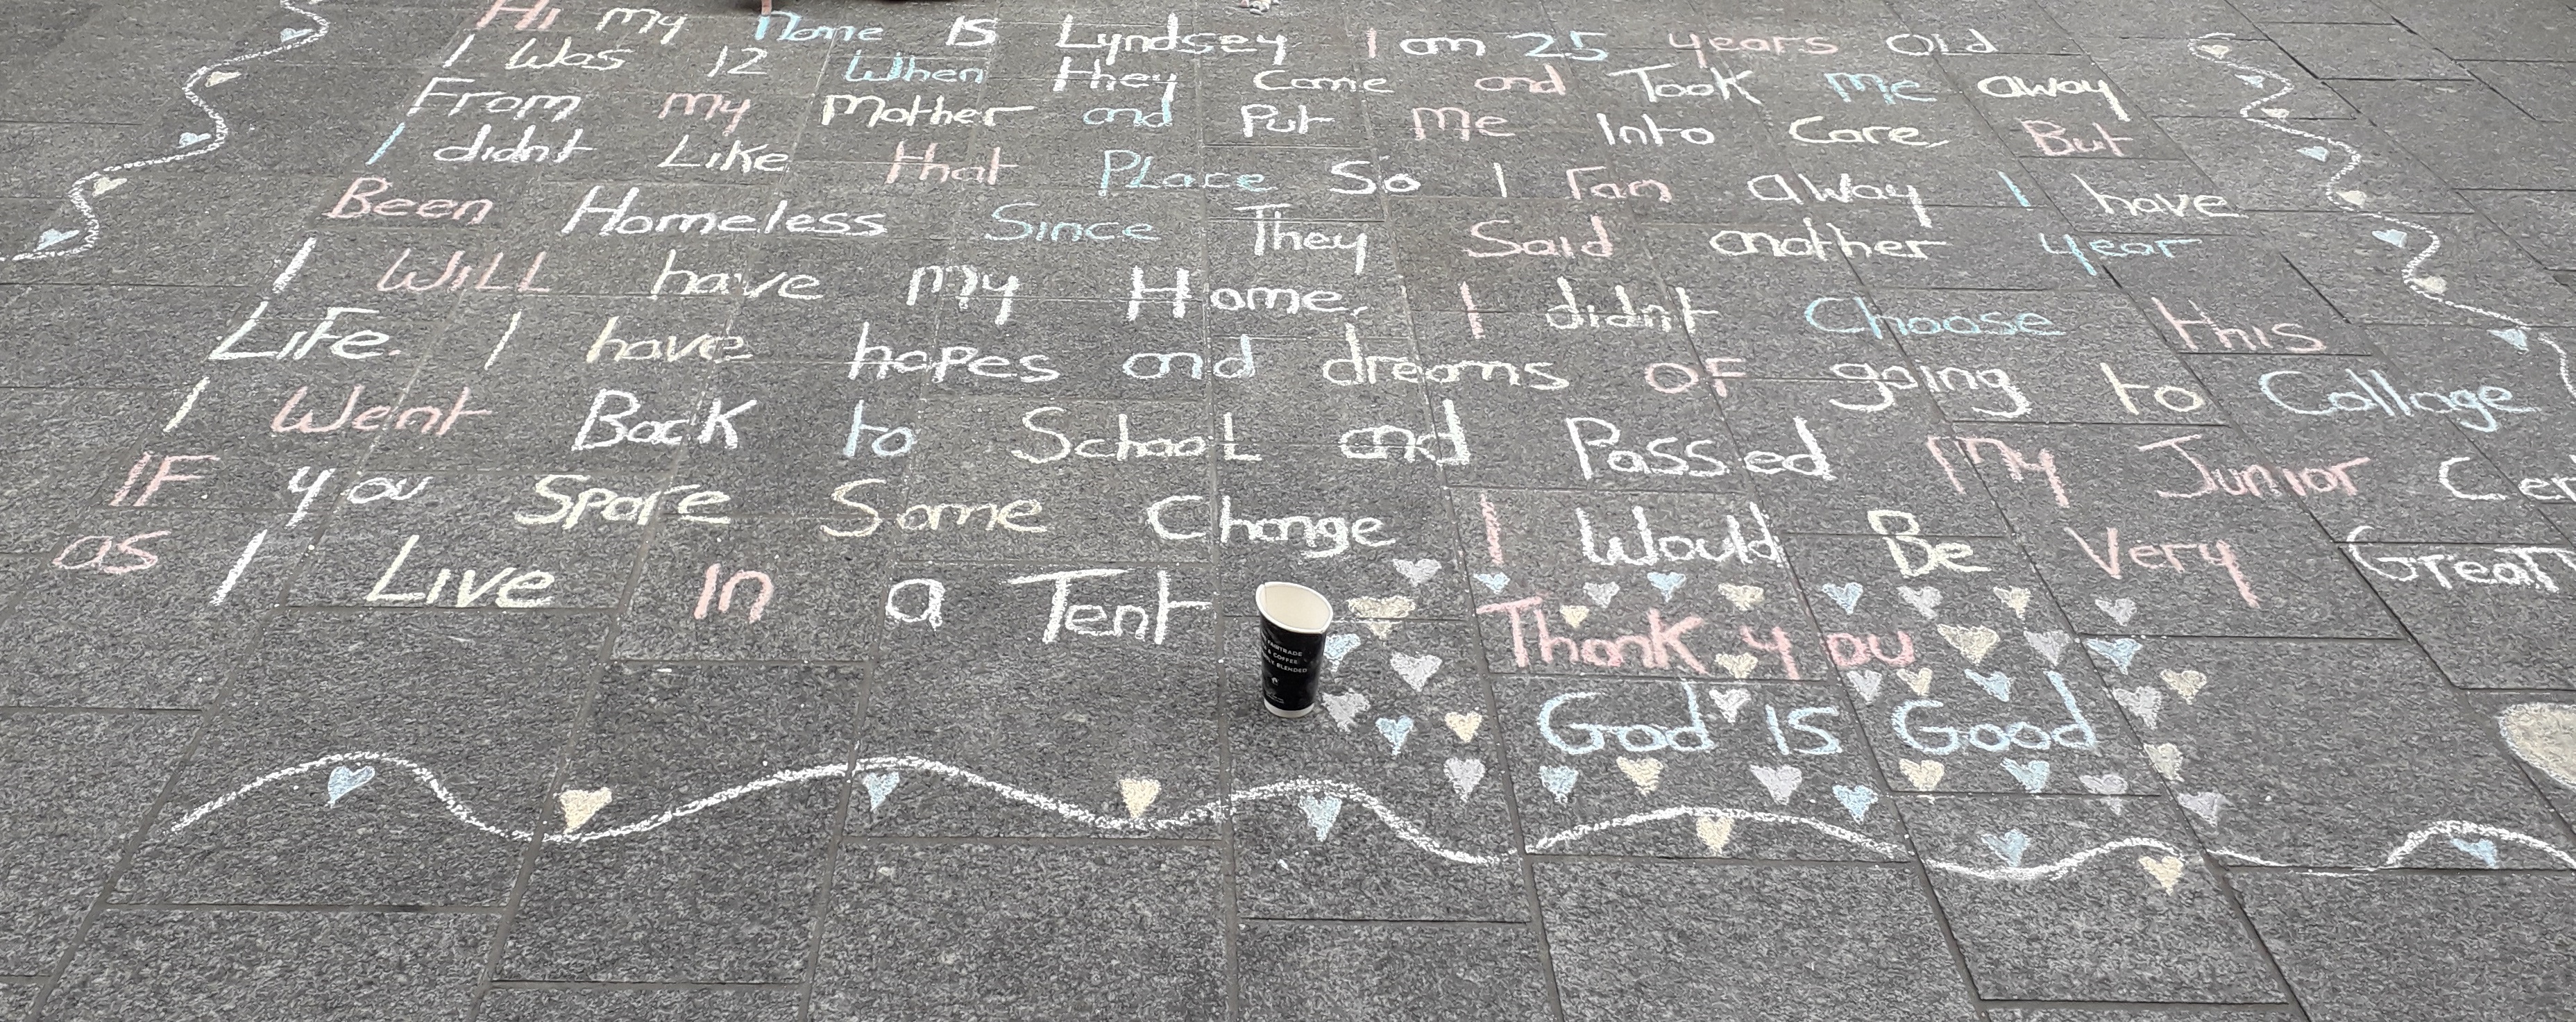 Hi my Name IS Lyndsey I am 25 years Old
I Was 12 When they Came and Took Me away
From my Mother and Put Me Into Care, But
I didnt Like that PLace So I ran away I have
Been Homeless Since They Said another year
I WiLL have my Home. I didn't Choose this
LiFe. I have hopes and dreams OF going to Collage
I Went Back to SchooL and Passed my Junior Cer
IF you Spare Some Change I Would Be Very Greatf
as I Live In a Tent Thank you
God IS Good
& COFFEE
BLENDED